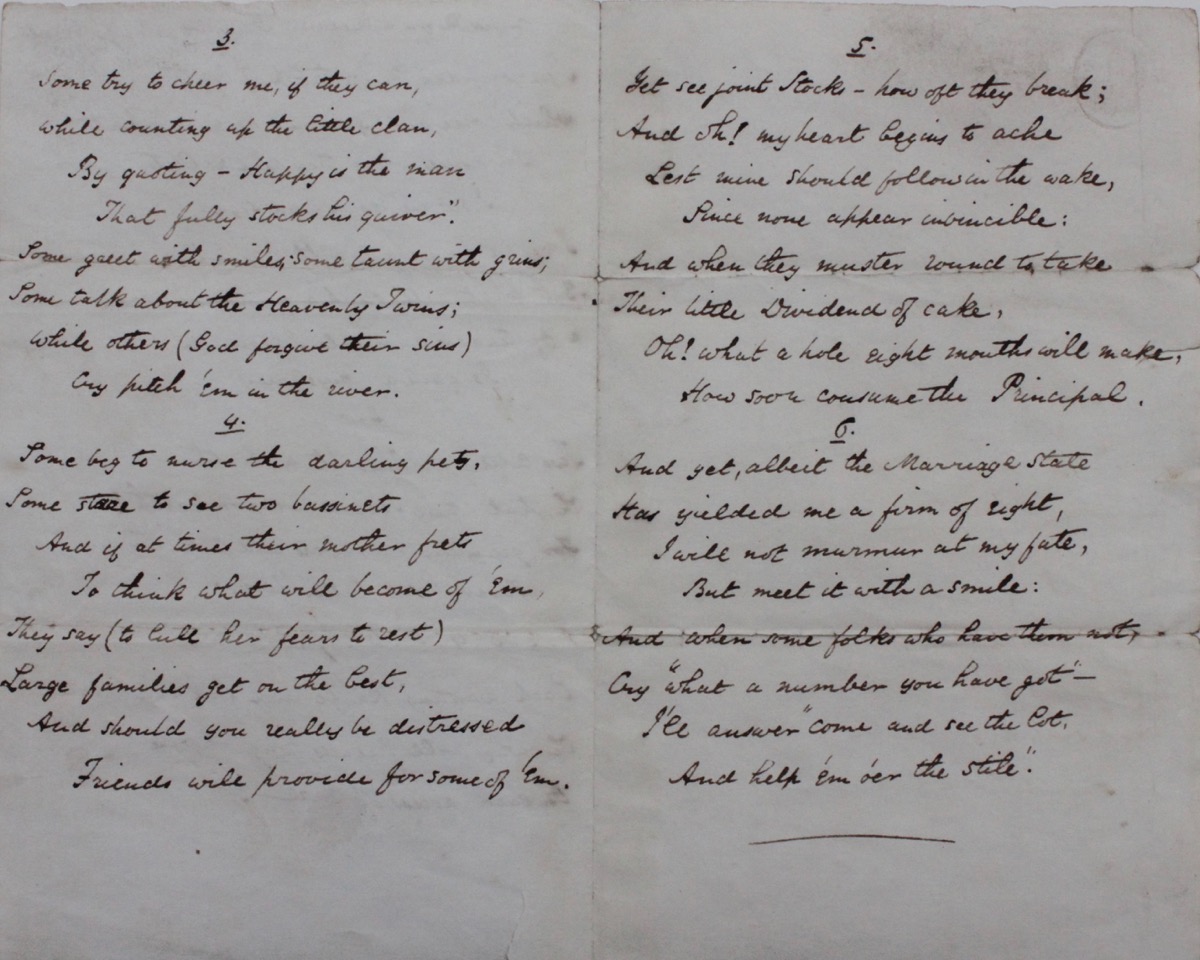 3.
Some try to cheer me, if they can,
While counting up the little clan,
By quoting – Happy is the man
That fully stocks his quiver".
Some greet with smiles; some taunt with grins;
Some talk about the Heavenly Twins;
While others (God forgive their sins)
Cry pitch 'em in the river.
4.
Some beg to nurse the darling pets,
Some stare to see two bassinets
And if at times their mother frets
To think what will become of 'Em,
They say (to lull her fears to rest)
Large families get on the best,
And should you really be distressed
Friends will provide for some of 'Em.
5.
Yet see joint Stocks – how oft they break;
And oh! my heart begins to ache
Lest mine should follow in the wake,
Since none appear invincible:
And when they muster round to take
Their little Dividend of cake,
Oh! what a hole eight mouths will make,
How soon consume the Principal.
6.
And yet, albeit the Marriage State
Has yielded me a firm of eight,
I will not murmur at my fate,
But meet it with a smile:
And when some folks who have them not,
Cry "what a number you have got" –
I'll answer "come and see the lot,
And help 'em o'er the stile".